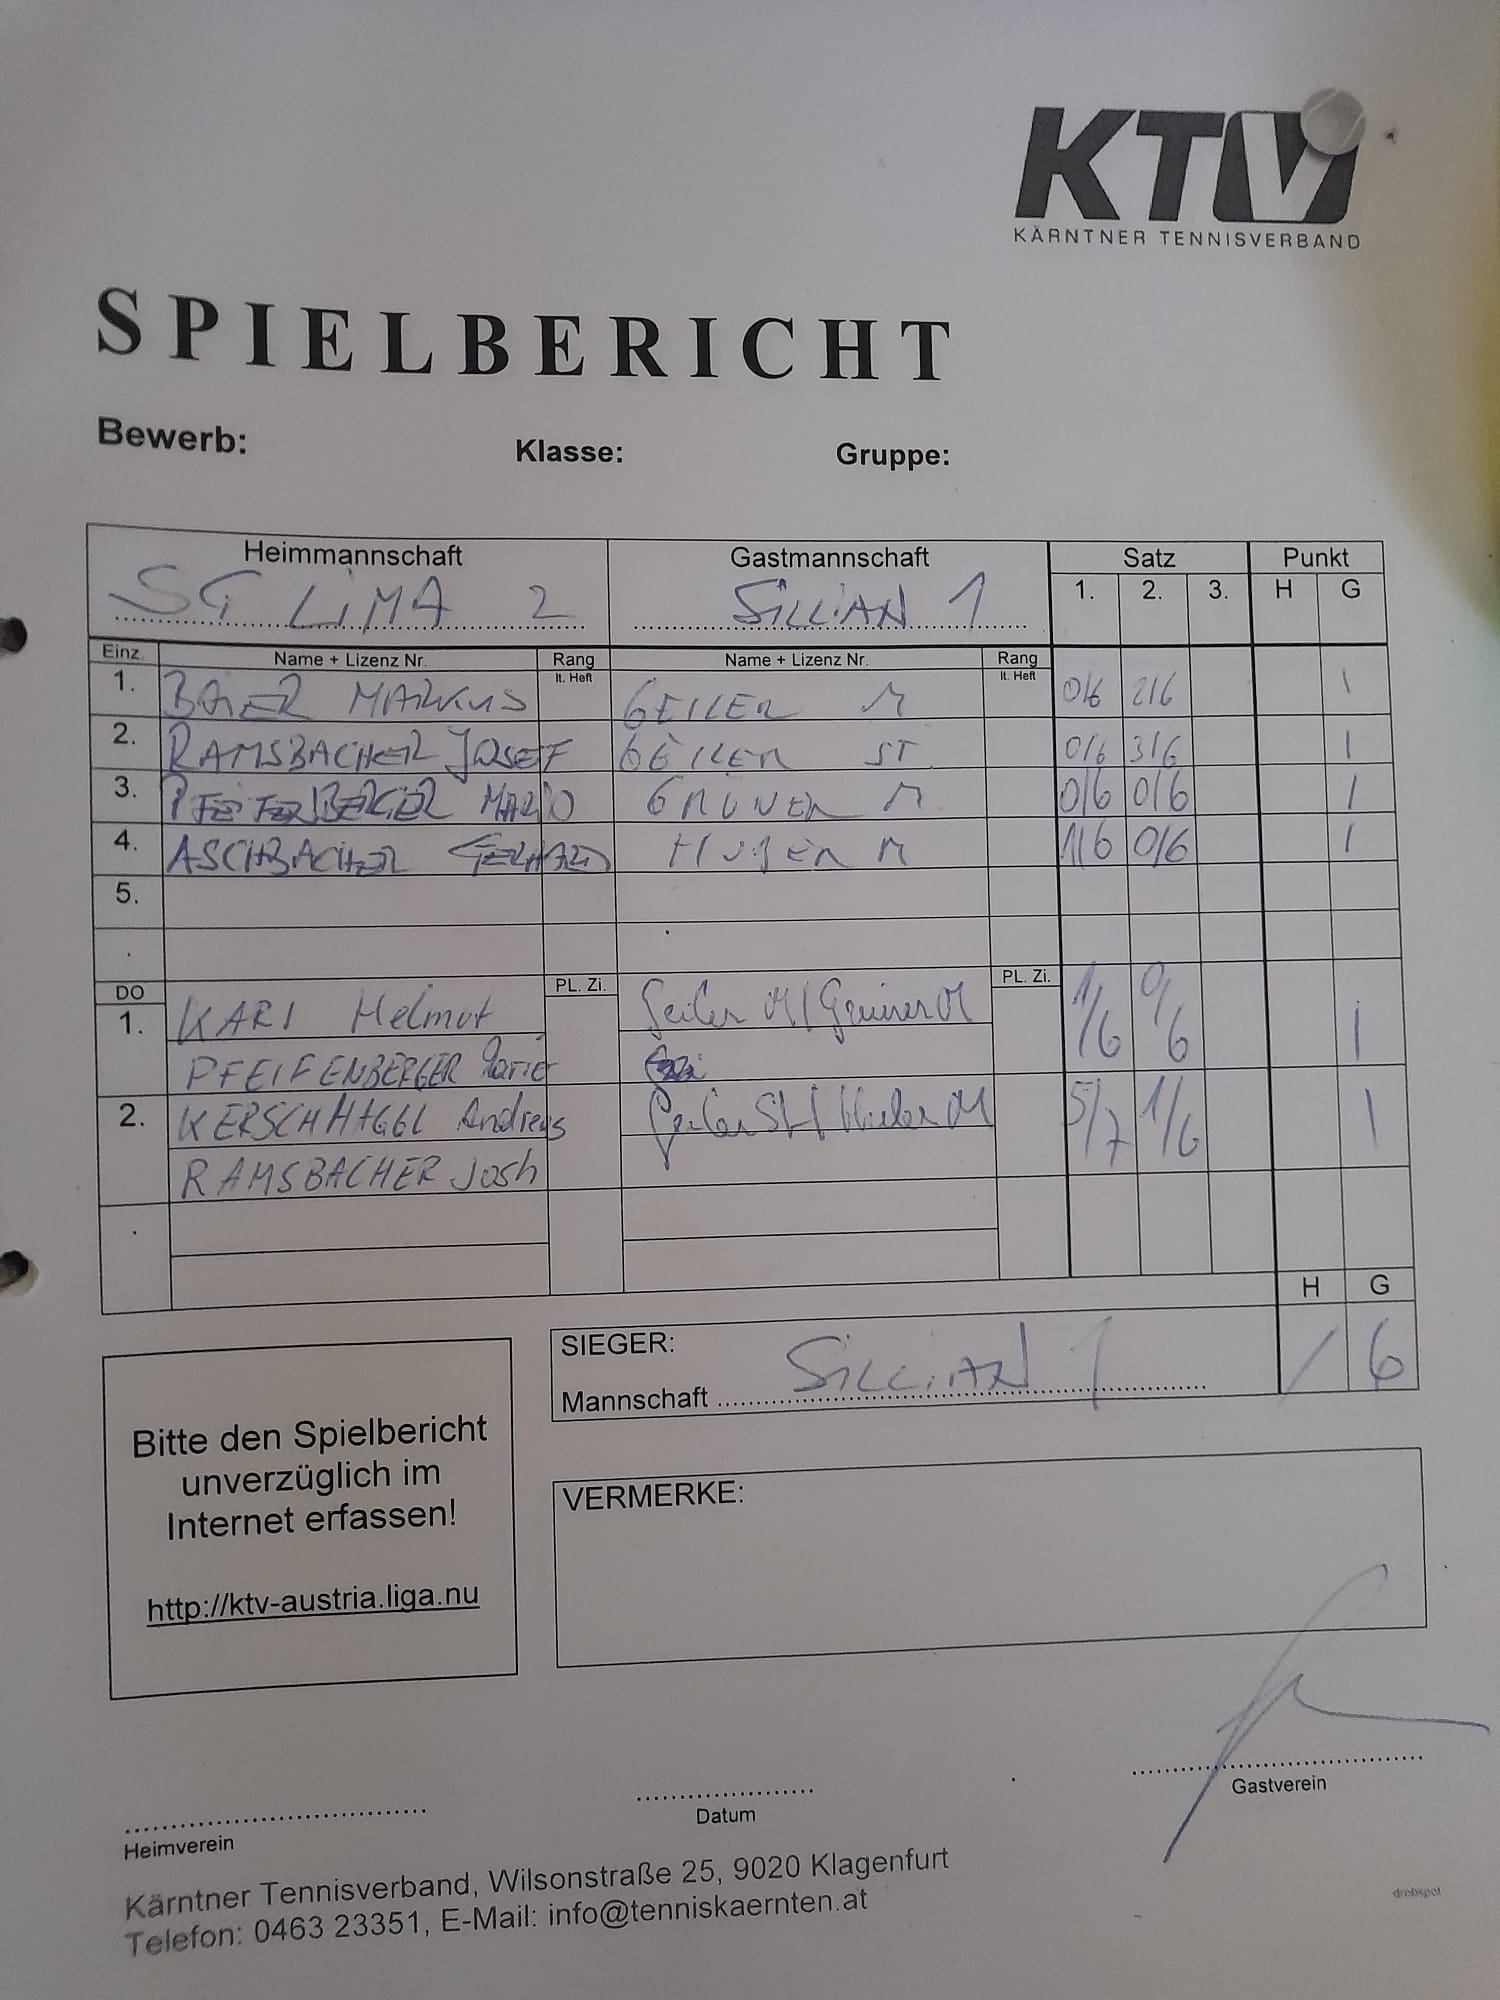 KTV
KÄRNTNER TENNISVERBAND
SPIELBERICHT
Bewerb: Klasse: Gruppe:
Heimmannschaft Gastmannschaft Satz Punkt
SG LIMA 2 SILLIAN 1 1. 2. 3. H G
Einz. Name + Lizenz Nr. Rang lt. Heft Name + Lizenz Nr. Rang lt. Heft
1. BAIER MARKUS GEILER M 0/6 2/6 1
2. RAMSBACHER JOSEF GEILER ST 0/6 3/6 1
3. MARIO GRUNER M 0/6 0/6 1
4. ASCHBACHER GERHARD HUBER M 1/6 0/6 1
5.
DO PL. Zi. PL. Zi.
1. KARI Helmut Geiler M/Gruiner M 1/6 0/6 1
PFEIFENBERGER Mario
2. KERSCHHAGGL Andreas Geiler St/ M 5/7 1/6 1
RAMSBACHER Josh
H G
SIEGER:
Mannschaft SILLIAN 1 / 6
Bitte den Spielbericht
unverzüglich im
Internet erfassen!
http://ktv-austria.liga.nu
VERMERKE:
Heimverein Datum Gastverein
Kärntner Tennisverband, Wilsonstraße 25, 9020 Klagenfurt
Telefon: 0463 23351, E-Mail: info@tenniskaernten.at